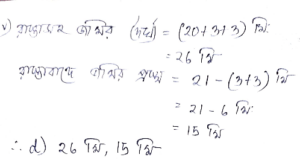 v) রাস্তাসহ জমির দৈর্ঘ্য = (20+3+3) মি
= 26 মি
রাস্তাবাদে জমির প্রস্থ = 21 - (3+3) মি
= 21 - 6 মি
= 15 মি
∴ d) 26 মি, 15 মি